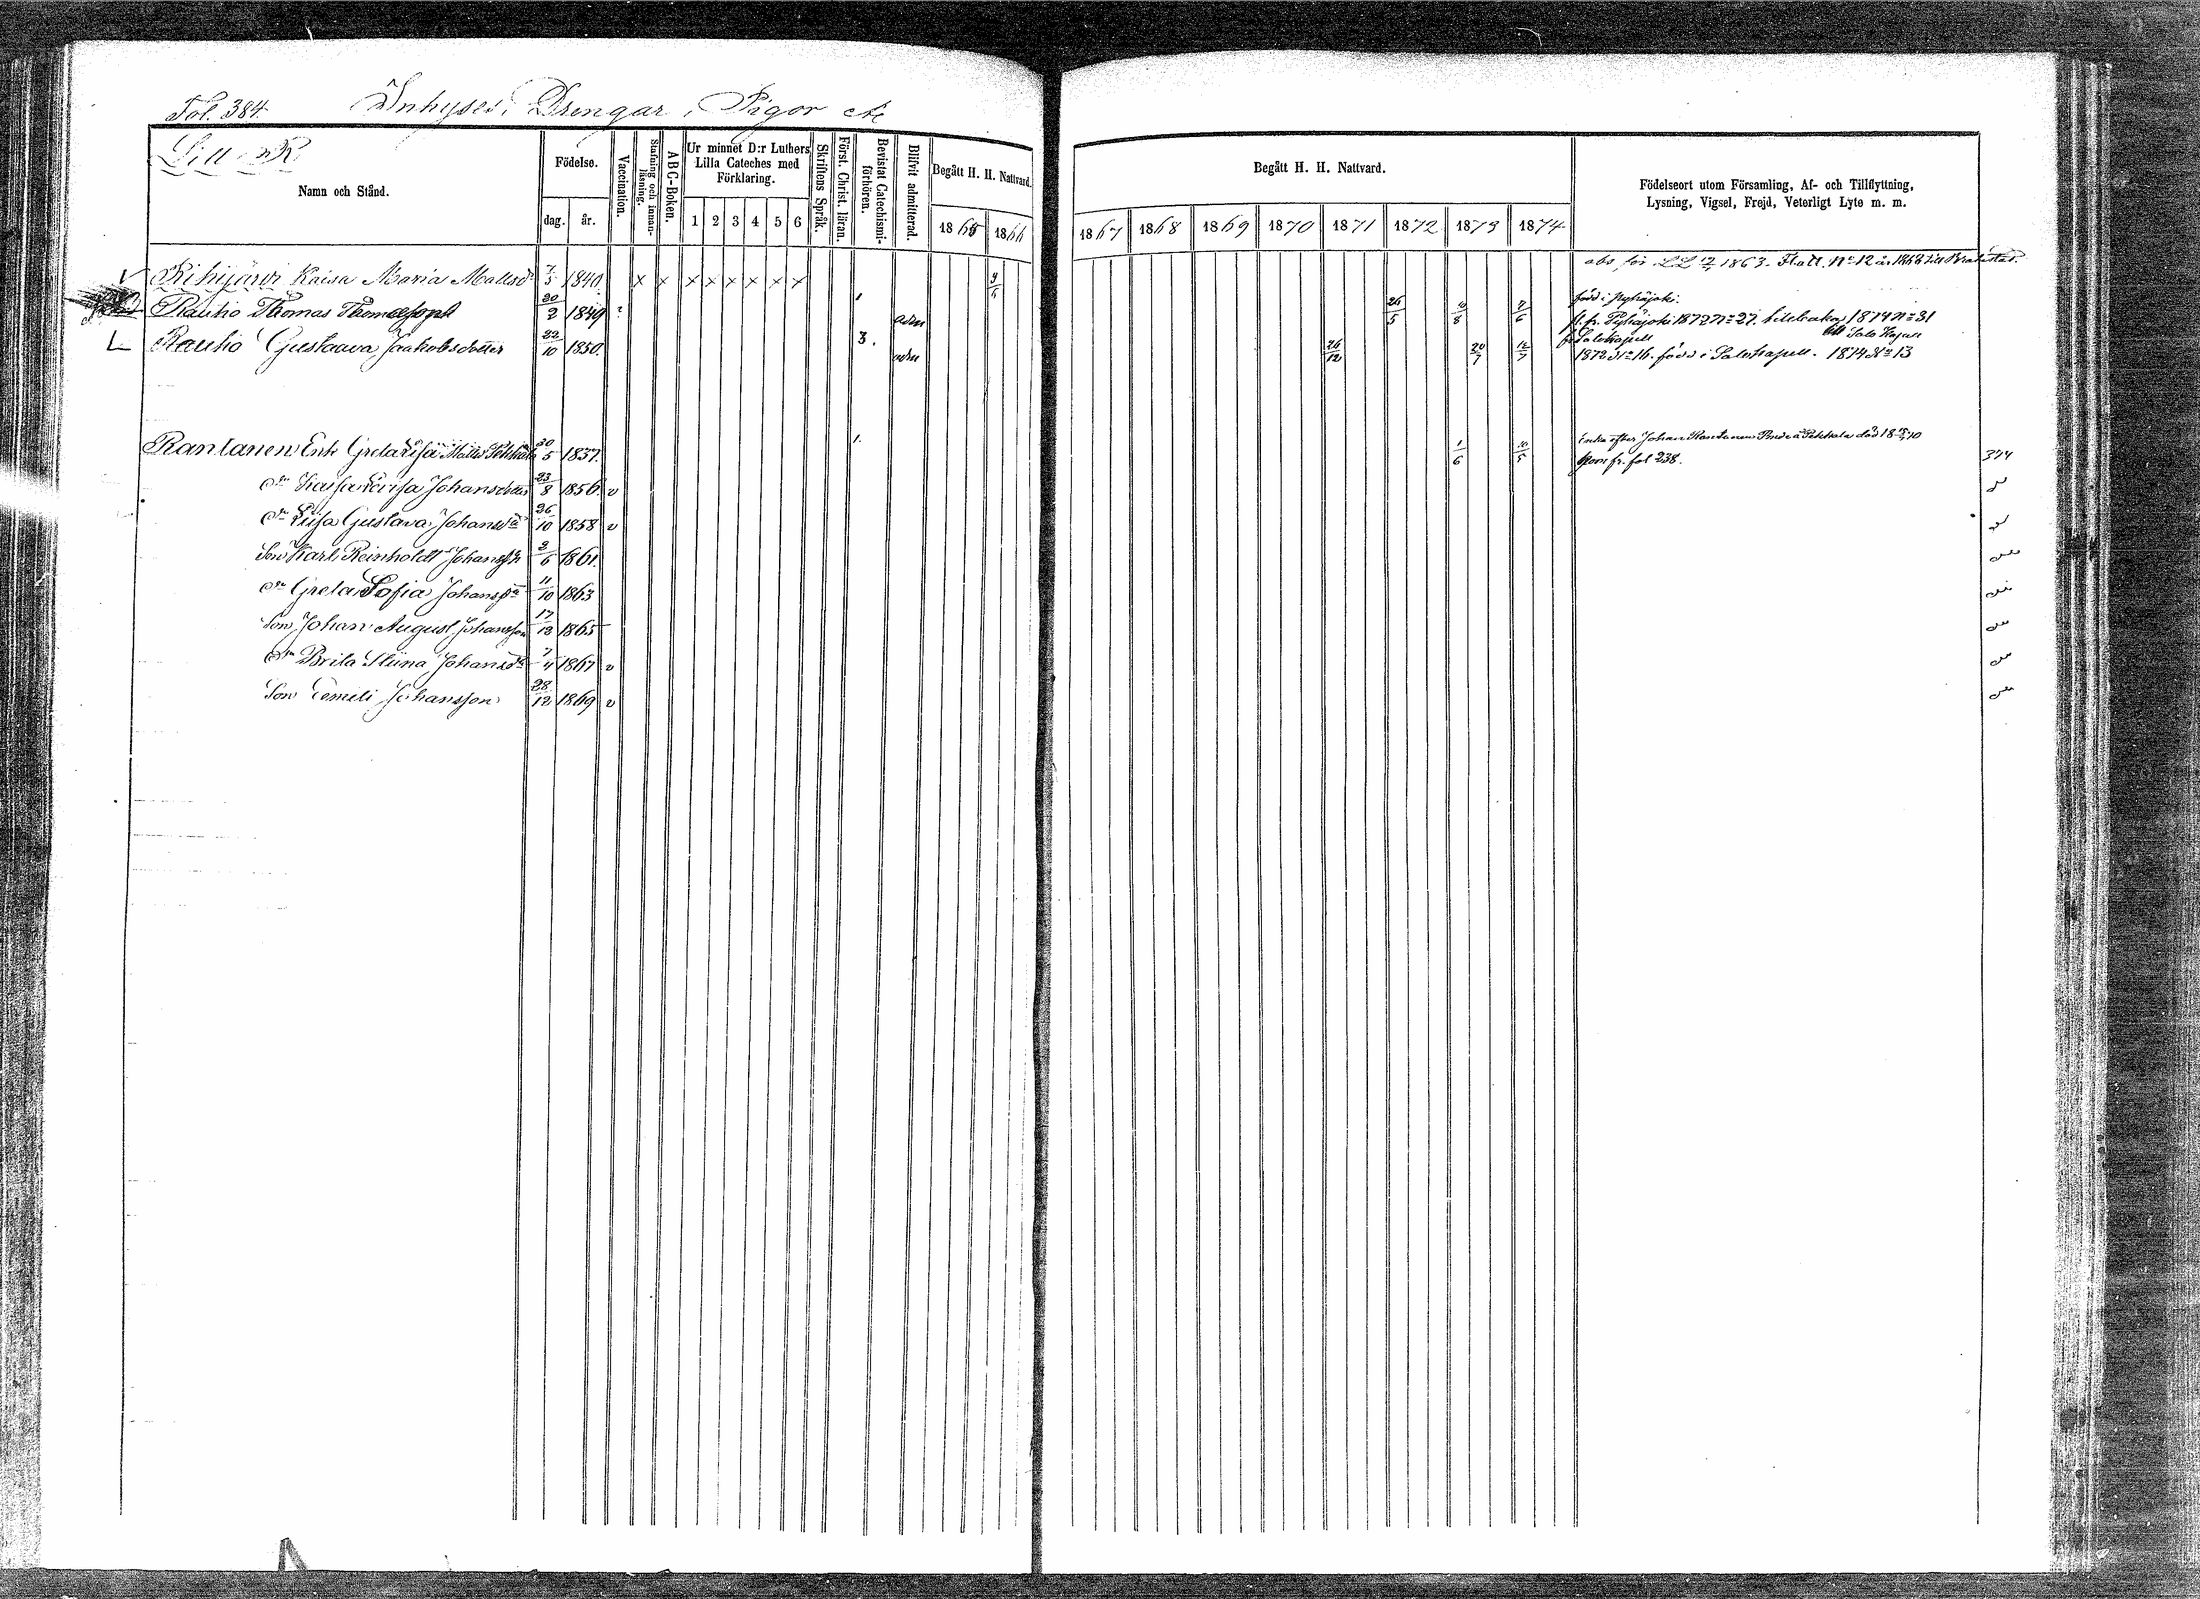 Fol. 384. Inhyses, Drengar, Pigor etc
Litt. R
Namn och Stånd.
Födelse.
dag. år.
Vaccination.
Stafning och innan-läsning.
ABC-Boken.
Ur minnet D:r Luthers Lilla Cateches med Förklaring.
1 2 3 4 5 6
Skriftens Språk.
Först. Christ. läran.
Bevistat Catechismi-förhören.
Blifvit admitterad.
Begått H. H. Nattvard.
1865 1866
Begått H. H. Nattvard.
1867 1868 1869 1870 1871 1872 1873 1874
Födelseort utom Församling, Af- och Tillflyttning,
Lysning, Vigsel, Frejd, Veterligt Lyte m. m.
Kaisa Maria Mattsd 7/5 1840 x x x x x x x x 9/6 abs för LL 1863. Flatt. No 12 år 1868 till Brahestad.
Rauhio Thomas Thomasson 20/2 1849 ? 1 adm 26/5 8 6 född i Pyhäjoki.
fl. fr. Pyhäjoki 1872 No 27. tillbaka 1874 No 31
Rauhio Gustaava Jaakobsdotter 22/10 1850. 3. adm 26/12 20/7 12/7 fr Salo kapell till Salo Kapell
1872 No 16. född i Salo kapell. 1874 No 13
Rantanen Enk. Greta Lisa Matts 30/5 1837. 1. 1/6 10/5 Enka efter Johan Rantanen
fr. fol 238. 344
dr Kaisa Lovisa Johansdotter 23/8 1856. v
dr Liisa Gustava Johansd 26/10 1858 v
Son Karl Reinholdt Johanss 2/6 1861.
dr Greta Sofia Johansd 11/10 1863
Son Johan August Johansson 17/12 1865
dr Brita Stiina Johansd 7/4 1867 v
Son Eemeli Johansson 28/12 1869 v